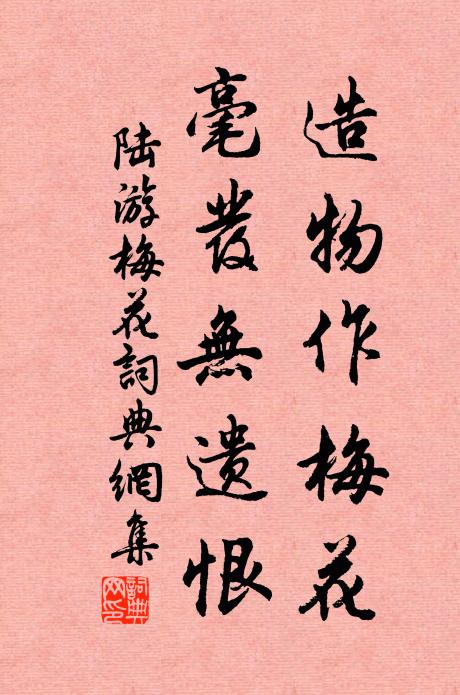 造物作梅花
毫發無遺恨
陸游梅花詞典網集
詞典網印